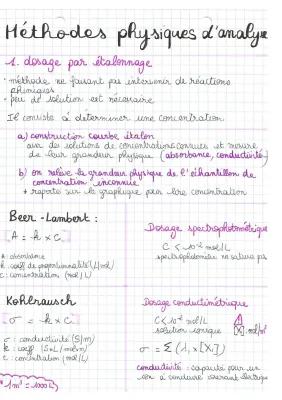 Méthodes physiques d'analyse
1. dosage par étalonnage
- méthode ne faisant pas intervenir de réactions
chimiques
- peu de solution est nécessaire
Il consiste à déterminer une concentration
a) construction courbe étalon
avec des solutions de concentrations connues et mesure
de leur grandeur physique (absorbance, conductivité)
b) on relève la grandeur physique de l'échantillon de
concentration inconnue
+ reporte sur le graphique pour lire concentration
Beer-Lambert :
A = k x c
A : absorbance
k : coeff de proportionnalité (L/mol)
c : concentration (mol/L)
Dosage spectrophotométrique
C < 10⁻² mol/L
spectrophotomètre ne sature pas
Kohlrausch
σ = k x c
σ : conductivité (S/m)
k : coeff (S.L/mol/m)
c : concentration (mol/L)
1m³ = 1000L
Dosage conductimétrique
C < 10⁻² mol/L
solution ionique
[X] mol/m³
σ = Σ (λi x [Xi])
conductivité : capacité pour un
ion à conduire courant électrique